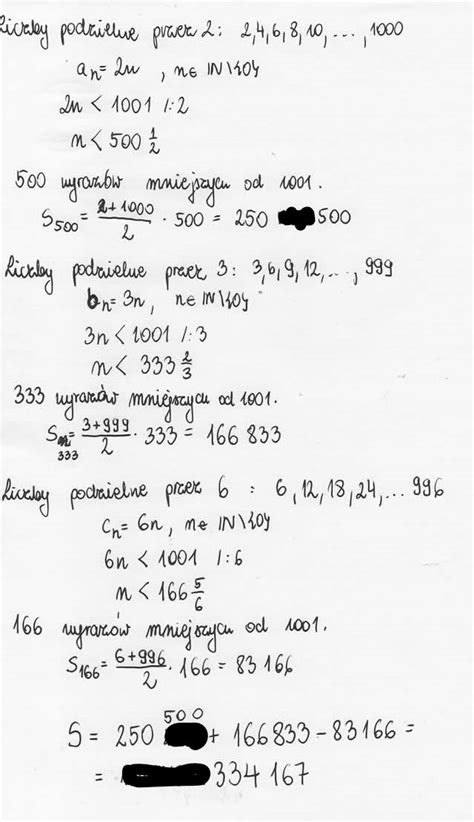 Liczby podzielne przez 2: 2,4,6,8,10, ..., 1000
aₙ= 2n , n∈ ℕ\{0}
2n < 1001 /:2
n < 500 1/2
500 wyrazów mniejszych od 1001.
S₅₀₀= (2+1000)/2 · 500 = 250 500
Liczby podzielne przez 3: 3,6,9,12, ..., 999
bₙ= 3n, n∈ ℕ\{0}
3n < 1001 /:3
n < 333 2/3
333 wyrazów mniejszych od 1001.
S₃₃₃= (3+999)/2 · 333 = 166 833
Liczby podzielne przez 6 : 6,12,18,24, ... 996
cₙ= 6n, n∈ ℕ\{0}
6n < 1001 /:6
n < 166 5/6
166 wyrazów mniejszych od 1001.
S₁₆₆= (6+996)/2 · 166 = 83 166
S = 250 500 + 166 833 - 83 166 =
= 334 167